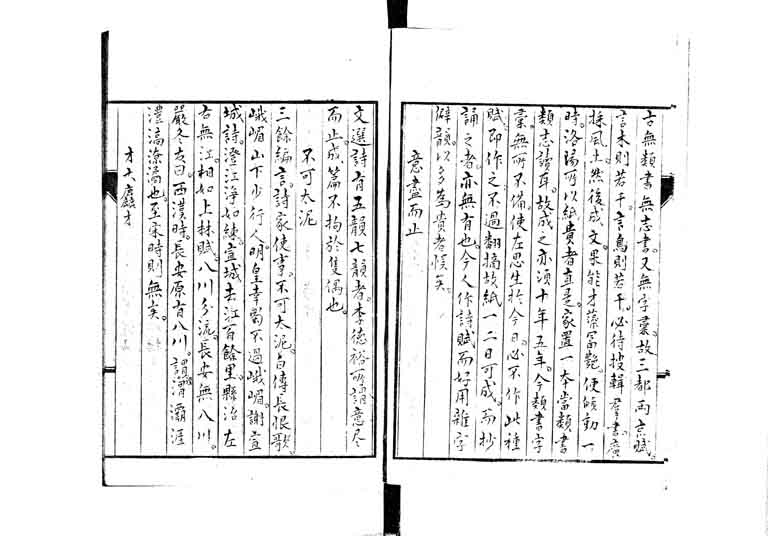 古無類書無志書。又無字彙。故三都兩京賦。
言木則若干。言鳥則若干。必待搜輯羣書。廣
採風土。然後成文。果能才藻富艷。便傾動一
時。洛陽所以紙貴者。直是家置一本。當類書
類志讀耳。故成之亦須十年五年。今類書字
彙無所不備。使左思生於今日。必不作此種
賦。即作之。不過翻摘故紙。一二日可成。而抄
誦之者。亦無有也。今人作詩賦而好用雜字
僻韻。以多為貴者。悞矣。
意盡而止
文選詩有五韻七韻者。李德裕所謂意尽
而止。成篇不拘於隻偶也。
不可太泥
三餘編言。詩家使事。不可太泥。白傅長恨歌。
峨嵋山下少行人。明皇幸蜀。不過峨嵋。謝宣
城詩。澄江淨如練。宣城去江百餘里。縣治左
右無江。相如上林賦。八川分流。長安無八川。
嚴冬友曰。西漢時。長安原有八川。謂涇渭灞滻
灃滈潦潏也。至宋時則無矣。
才大麤才